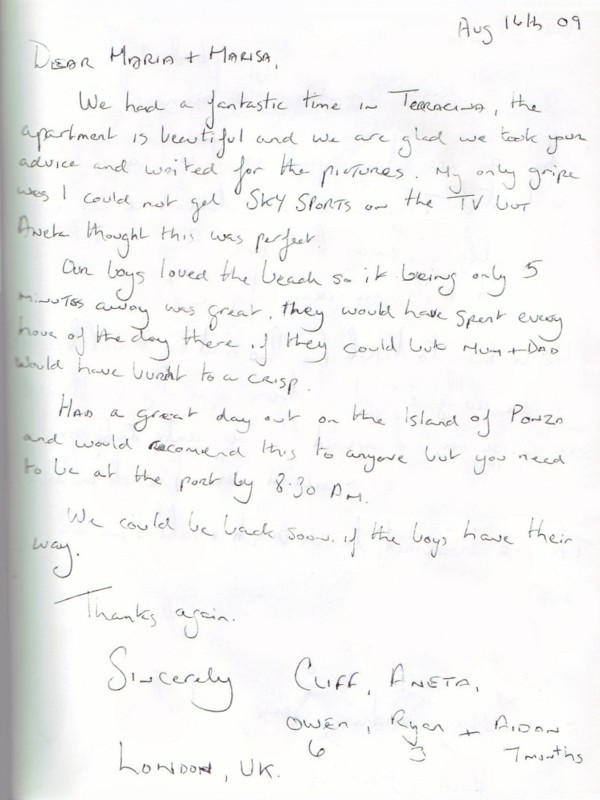 Aug 16th 09
Dear Maria + Marisa,
We had a fantastic time in Terracina, the
apartment is beautiful and we are glad we took your
advice and waited for the pictures. My only gripe
was I could not get SKY SPORTS on the TV but
Aneta thought this was perfect.
Our boys loved the beach so it being only 5
minutes away was great, they would have spent every
hour of the day there if they could but Mum + Dad
would have burnt to a crisp.
Had a great day out on the island of Ponza
and would recomend this to anyone but you need
to be at the port by 8.30 AM.
We could be back soon if the boys have their
way.
Thanks again.
Sincerely Cliff, Aneta,
Owen, Ryan + Aidan
6 3 7 months
London, UK.